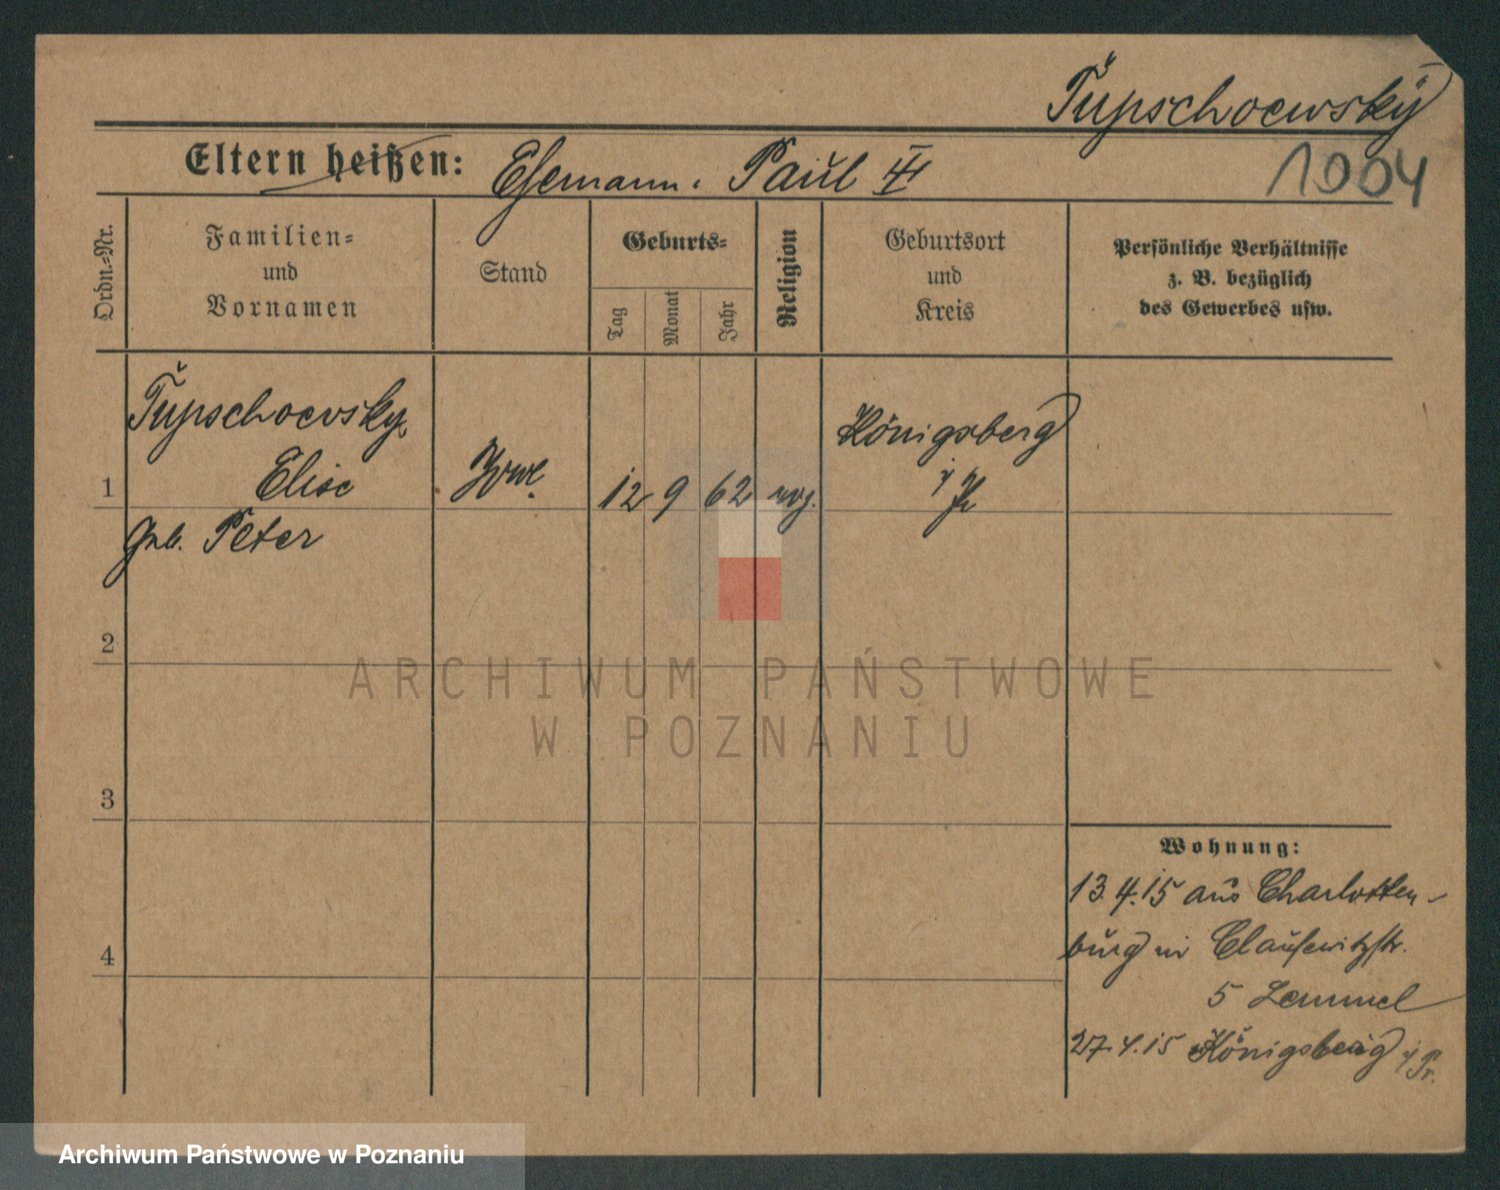 Tupschoewsky
Eltern heißen: Ehemann. Paul III
1904
Ordn.-Nr.
Familien-
und
Vornamen
Stand
Geburts-
Tag
Monat
Jahr
Religion
Geburtsort
und
Kreis
Persönliche Verhältnisse
z. B. bezüglich
des Gewerbes usw.
Tupschoewsky
1 Elise Wwe. 12 9 62 evg. Königsberg
i/Pr
geb. Peter
2
3
4
ARCHIWUM PAŃSTWOWE
W POZNANIU
Wohnung:
13.4.15 aus Charlotten-
burg in Clausewitzstr.
5 Lemmel
27.4.15 Königsberg i/Pr.
Archiwum Państwowe w Poznaniu